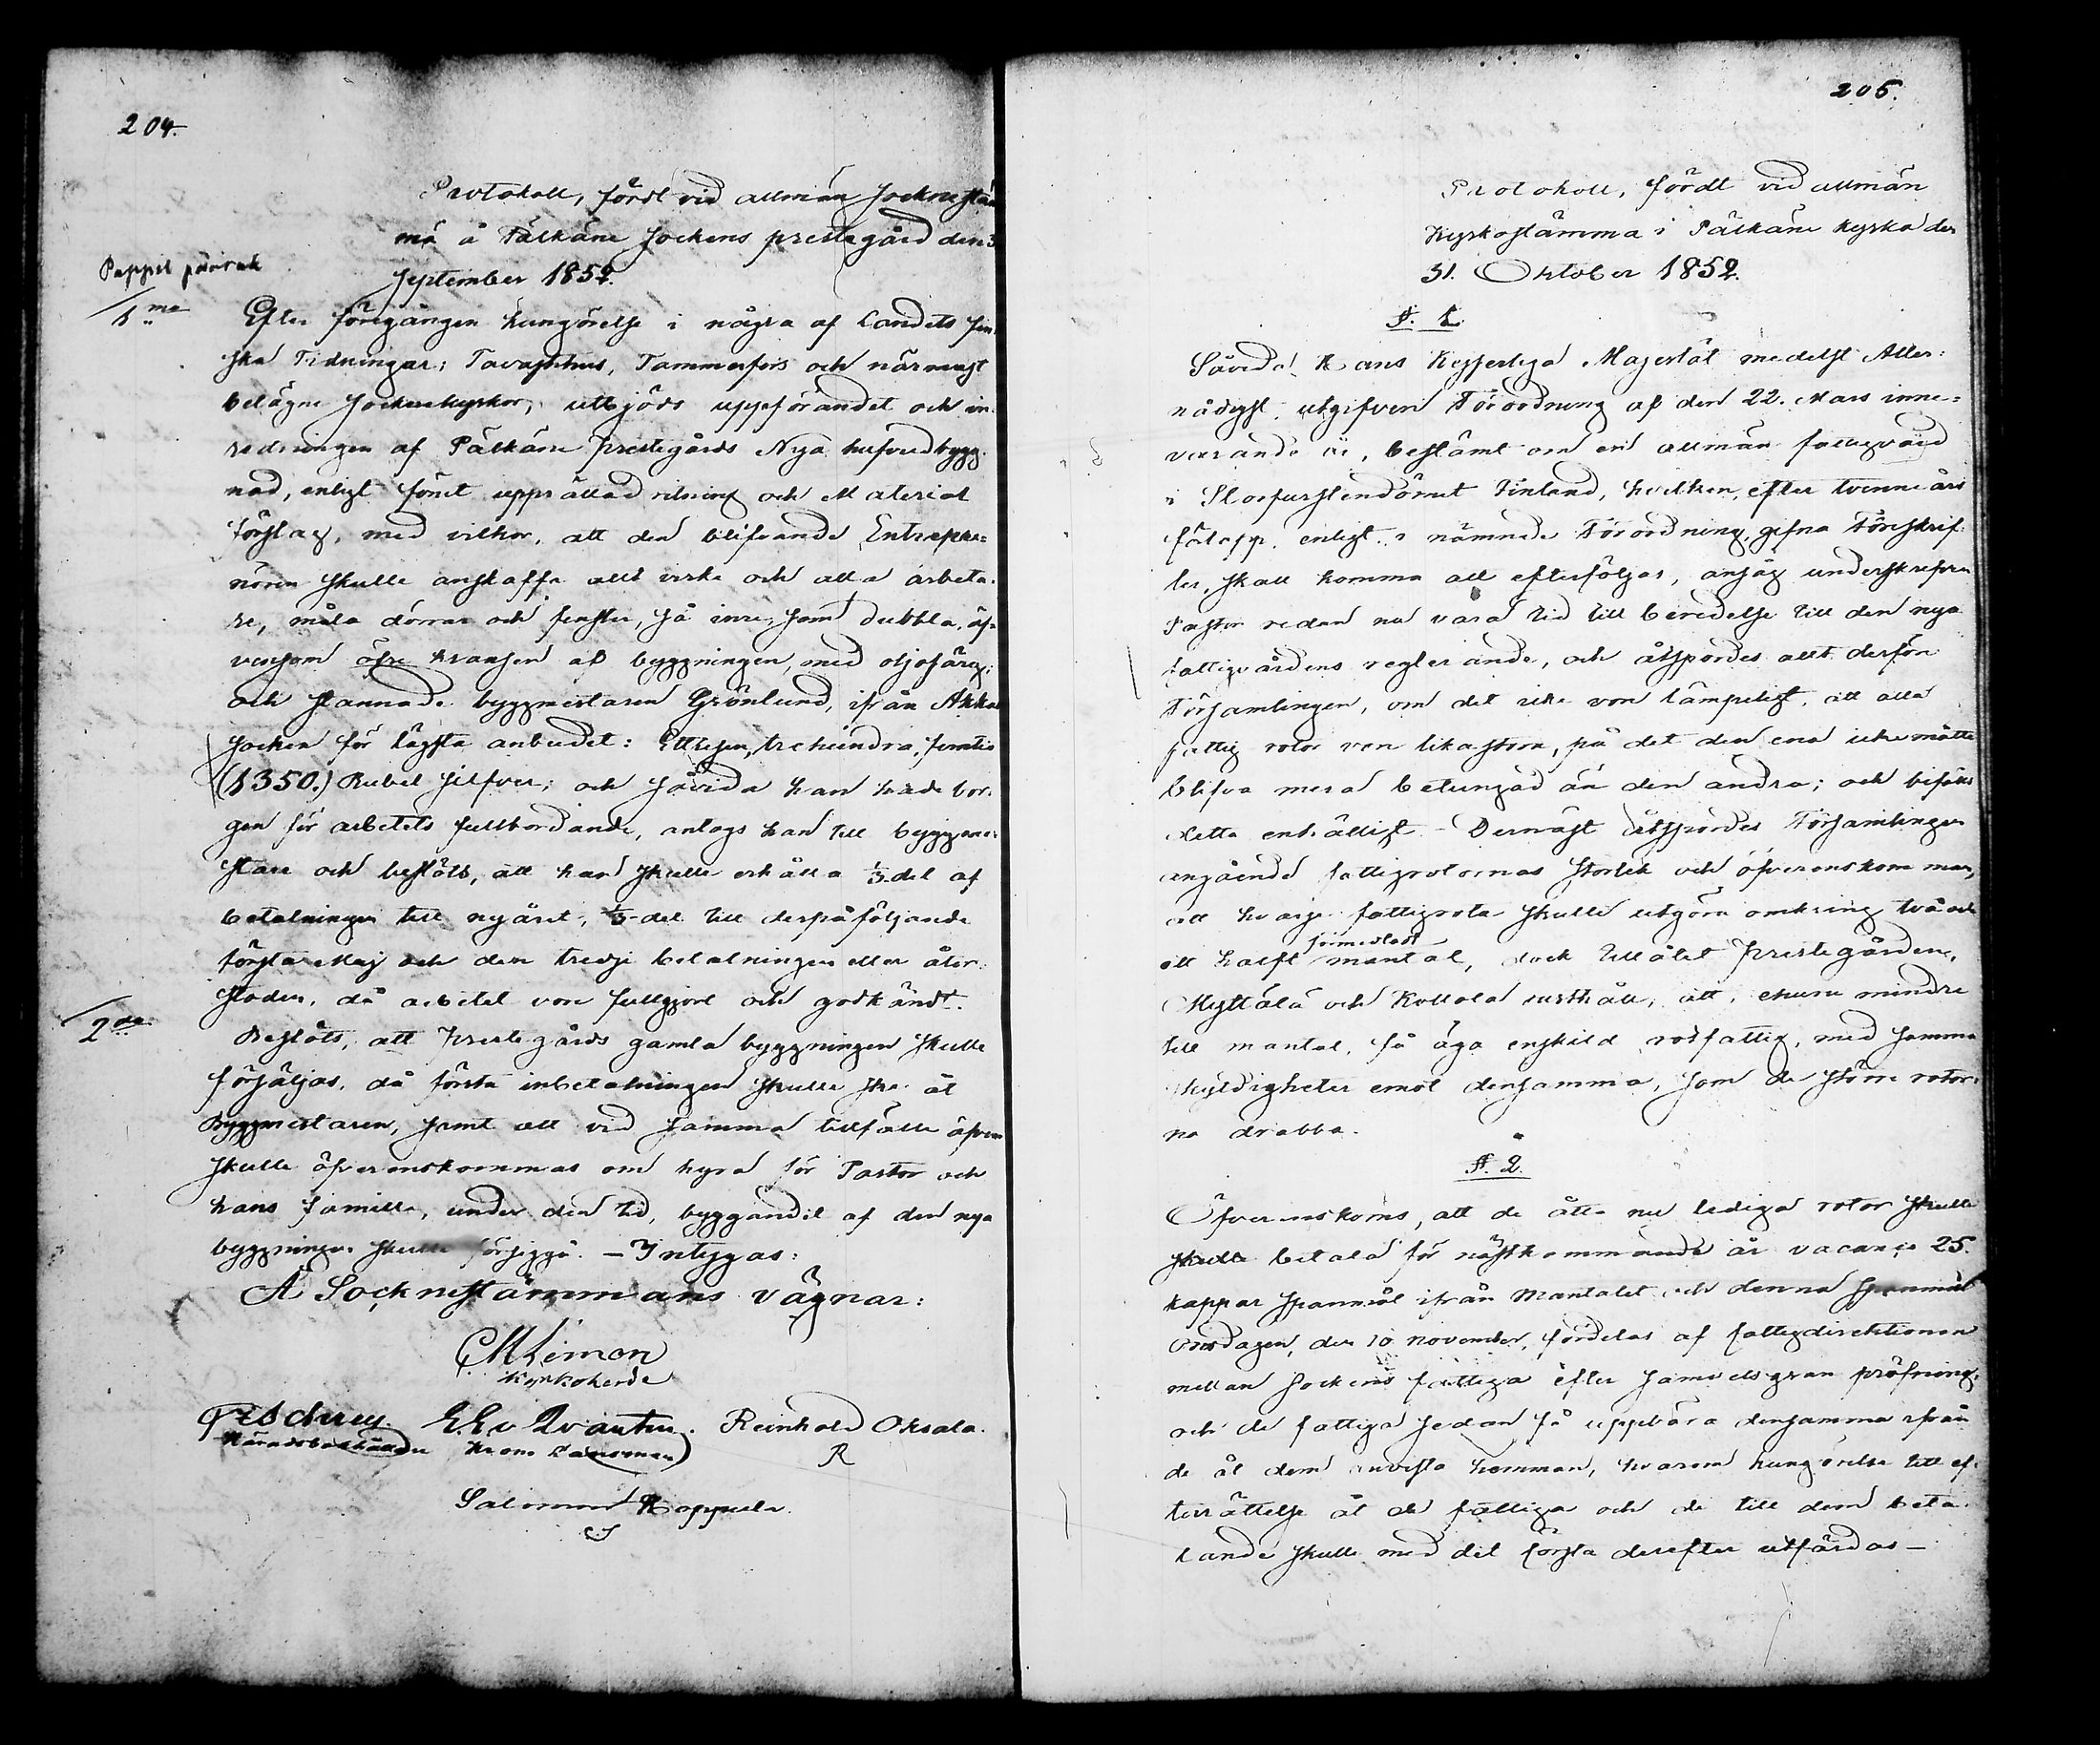 204.
Protokoll, fördt vid allmän Socknestäm
ma å Pälkäne Sockens prestegård den 3
September 1852.
1mo
Efter föregången kungörelse i några af Landets fin
ska Tidningar; Tavasthus, Tammerfors och närmast
belägne Sockenekyrkor, utbjöds uppförandet och in-
redningen af Pälkäne prestegårds Nya hufvudbygg-
nad, enligt förut upprättad ritning och Material
förslag, med vilkor, att den blifvande Entrepre-
nören skulle anskaffa allt virke och alla arbeta-
re, måla dörrar och fenster, så inre, som dubbla, äf-
vensom öfre kransen af byggningen, med oljofärg;
och stannade byggmästaren Grönlund, ifrån Akkas
Socken för lägsta anbudet: Ettusen, trehundra, femtio
(1350.) Rubel Silfver; och såvida han hade bor-
gen för arbetets fullbordande, antogs han till byggmä-
stare och beslöts, att han skulle erhålla 1/3-del af
betalningen till nyåret, 1/3-del till derpåföljande
första Maj och den tredje betalningen eller åter-
stoden, då arbetet vore fullgjort och godkändt.
2do
Beslöts, att Prestegårds gamla byggningen skulle
försäljas, då första inbetalningen skulle ske åt
Byggmästaren, samt att vid samma tillfälle äfven
skulle öfverenskommas om hyra för Pastor och
hans familie, under den tid, byggandet af den nya
byggningen skulle försiggå. – Intygas:
Å Socknestämmans vägnar:
Kyrkoherde
Häradsbokhållare Krono Länsman Reinhold Oksala.
R
Salomon Kappula.
S
205.
Protokoll, fördt vid allmän
Kyrkostämma i Pälkäne kyrka den
31. Oktober 1852.
§. 1.
Såvida Hans Kejserliga Majestät medelst Aller-
nådigst utgifven Förordning af den 22. Mars inne-
varande år, bestämt om en allmän fattigvård
i Storfurstendömet Finland, hvilken, efter tvenne års
förlopp, enligt i nämnde Förordning gifna Föreskrif-
ter, skall komma att efterföljas, ansåg underskrefven
Pastor redan nu vara tid till beredelse till den nya
fattigvårdens reglerande, och åtspordes allt derföre
Församlingen, om det icke vore lämpeligt, att alla
fattig rotor vore likastora, på det den ena icke måtte
blifva mera betungad än den andra; och bifölls
detta enhälligt – Dernäst åtspordes Församlingen
angående fattigrotornas storlek och öfverenskom man,
att hvarje fattigrota skulle utgöra omkring två och
ett halft förmedladt mantal, dock tillåtet Prestegården,
Myttälä och Kollola rusthåll, att, ehuru mindre
till mantal, få äga enskild rotfattig, med samma
skyldigheter emot densamma, som de större rotor-
na drabba.
§. 2.
Öfverenskoms, att de åtta nu lediga rotor skulle
skulle betala för nästkommande år vacance 25.
kappar Spannmål ifrån Mantalet och denna Spannmål
Onsdagen, den 10 November, fördelas af fattigdirektionen
mellan Sockens fattiga efter samvetsgran pröfning,
och de fattiga sedan få uppbära densamma ifrån
de åt dem anvista hemman, hvarom kungörelse till ef-
terrättelse åt de fattiga och de till dem beta-
lande skulle med det första derefter utfärdas –